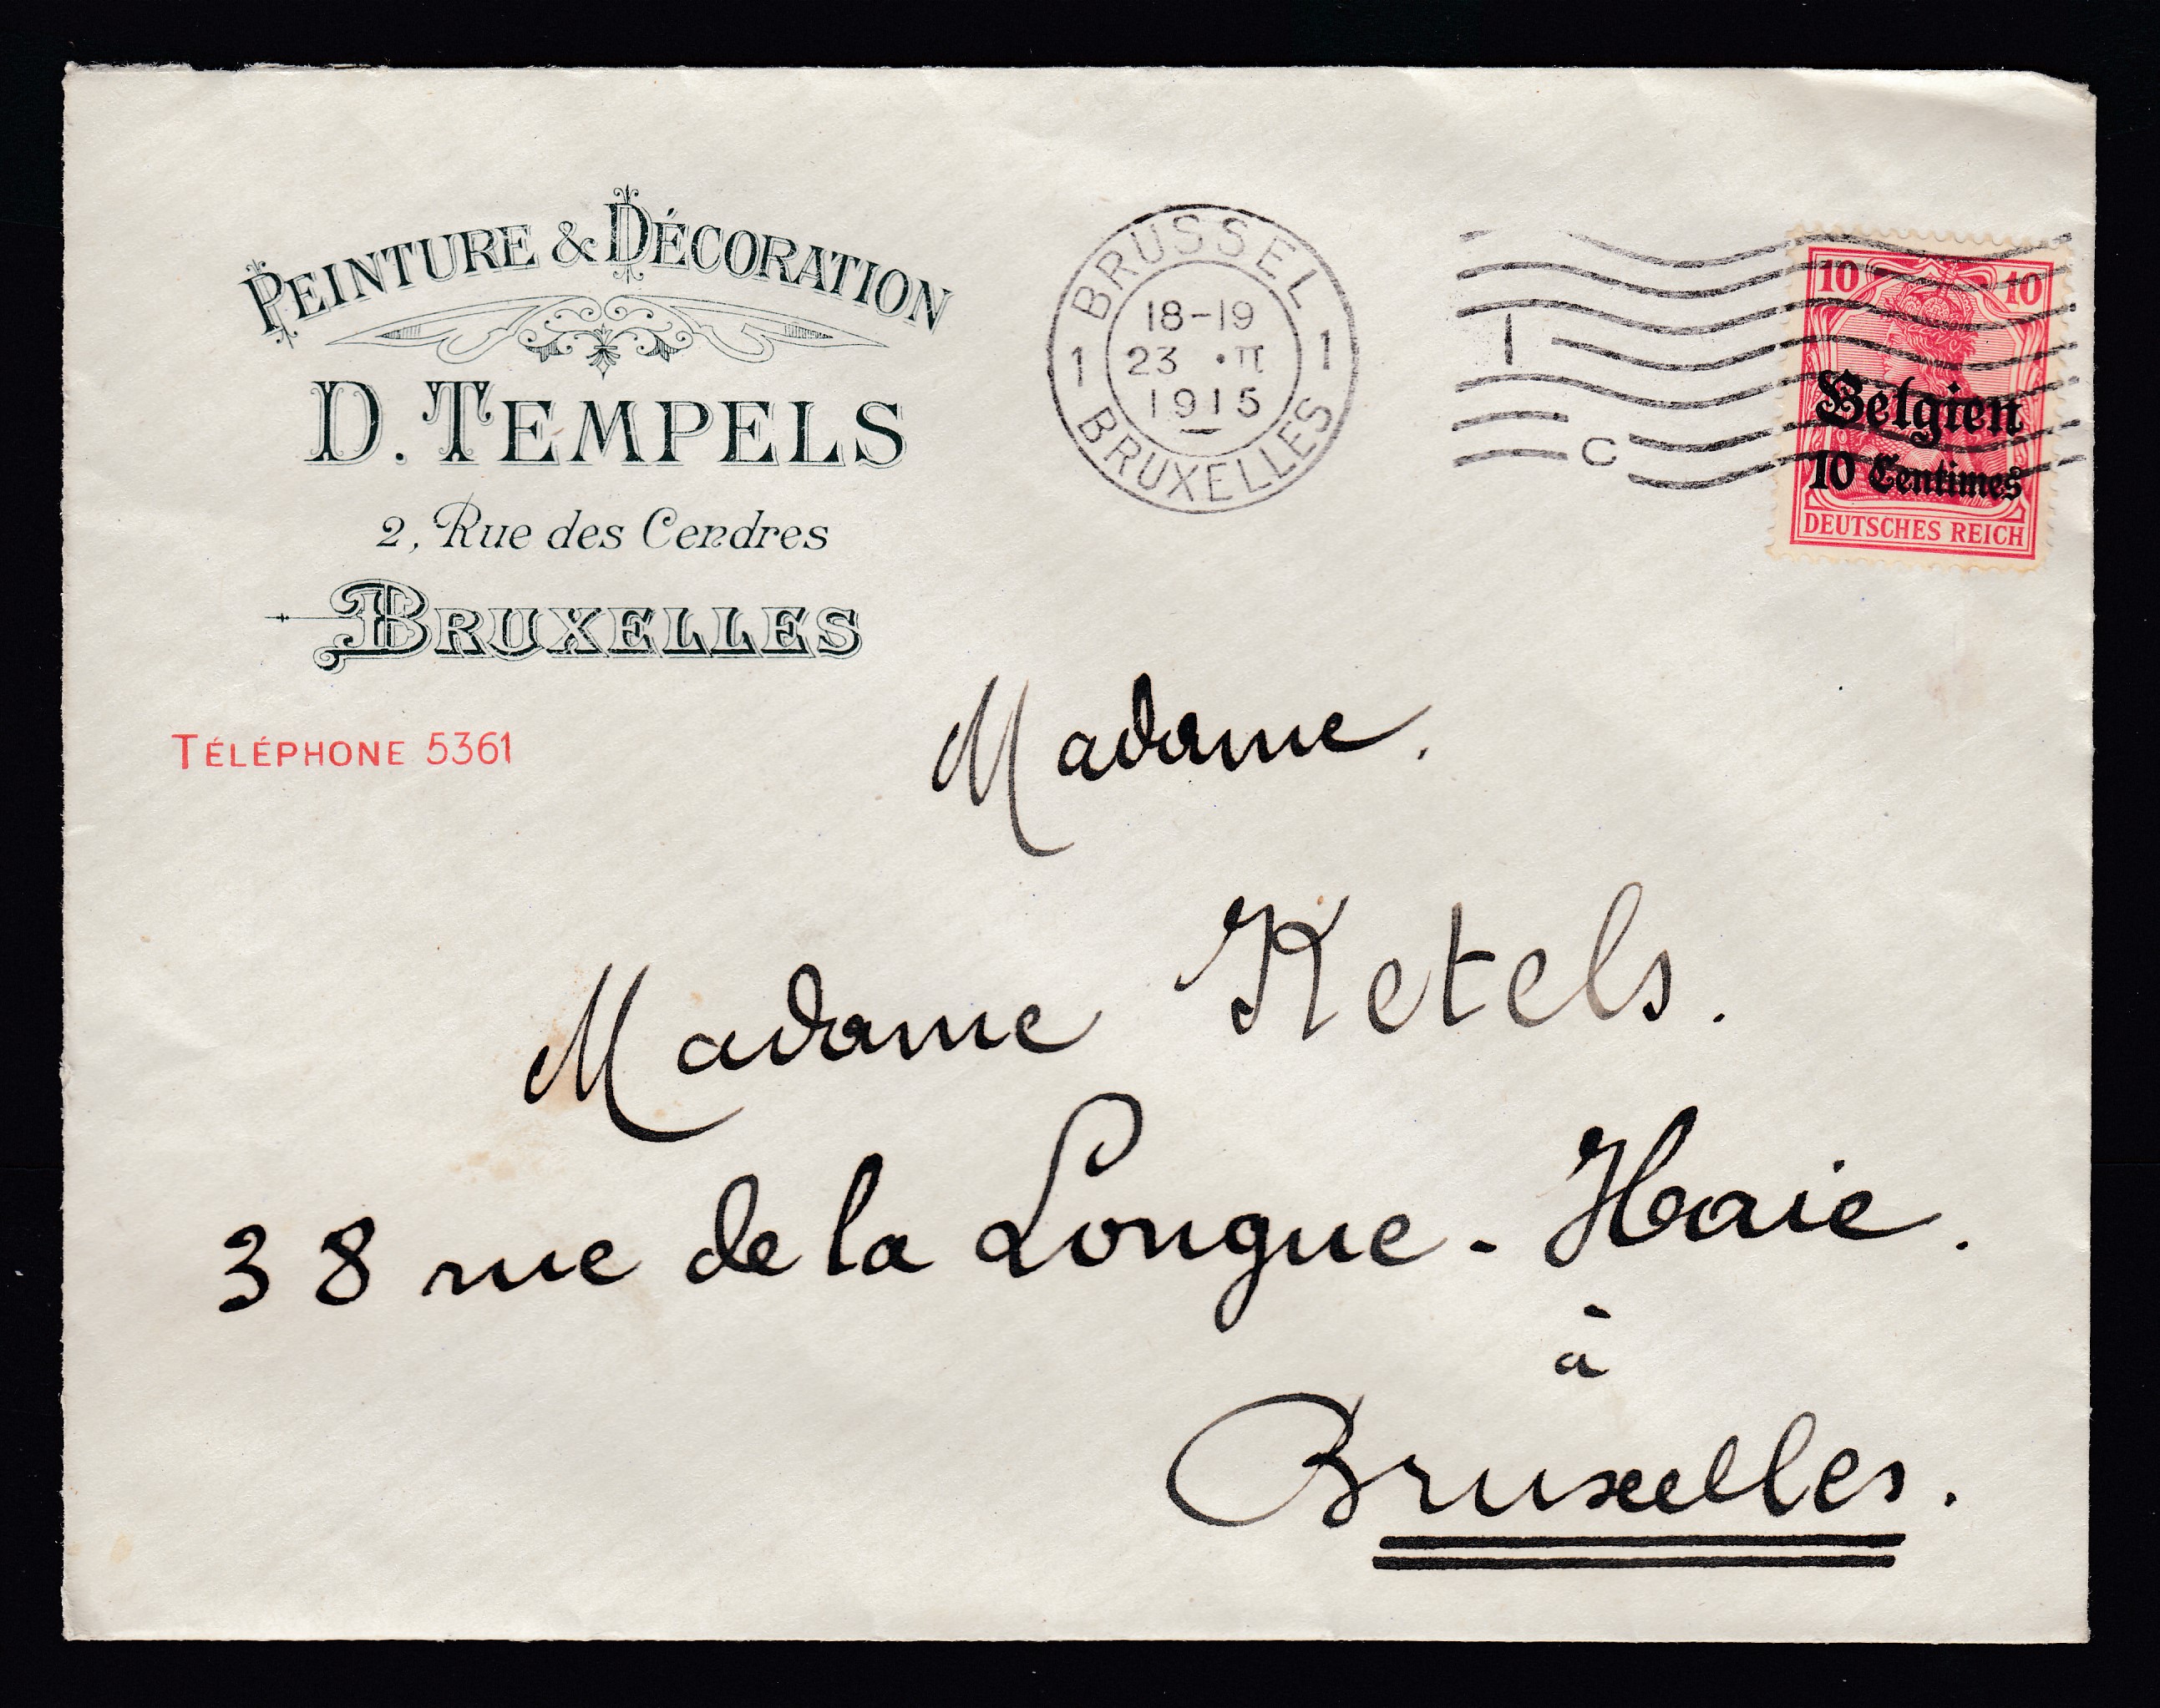 PEINTURE & DÉCORATION
D. TEMPELS
2, Rue des Cendres
BRUXELLES
TÉLÉPHONE 5361
BRUSSEL
18-19
1 23 ·II 1
1915
BRUXELLES
1
C
10 10
Belgien
10 Centimes
DEUTSCHES REICH
Madame.
Madame Ketels.
38 rue de la Longue-Haie.
à
Bruxelles.